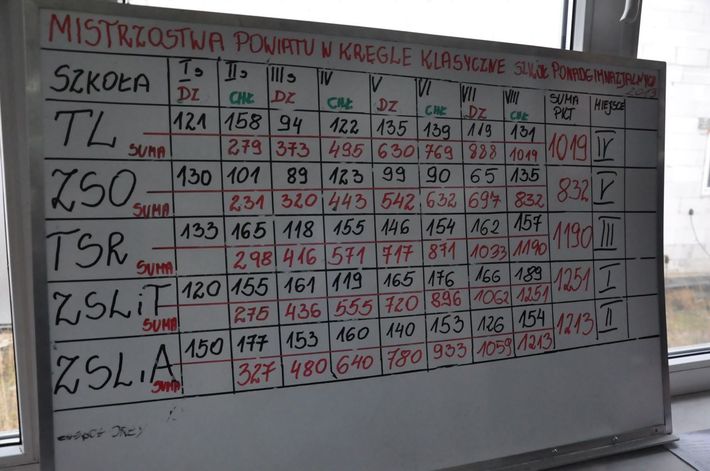 MISTRZOSTWA POWIATU W KRĘGLE KLASYCZNE SZKÓŁ PONADGIMNAZJALNYCH
2013
SZKOŁA I s DZ II s CHŁ III s DZ IV CHŁ V DZ VI CHŁ VII DZ VIII CHŁ SUMA PKT MIEJSCE
TL 121 158 94 122 135 139 119 131 1019 IV
SUMA 279 373 495 630 769 888 1019
ZSO 130 101 89 123 99 90 65 135 832 V
SUMA 231 320 443 542 632 697 832
TSR 133 165 118 155 146 154 162 157 1190 III
SUMA 298 416 571 717 871 1033 1190
ZSLiT 120 155 161 119 165 176 166 189 1251 I
SUMA 275 436 555 720 896 1062 1251
ZSLiA 150 177 153 160 140 153 126 154 1213 II
SUMA 327 480 640 780 933 1059 1213